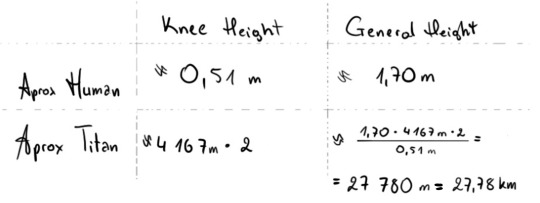 Knee Height General Height
Aprox Human ≈ 0,51 m ≈ 1,70 m
Aprox Titan ≈ 4 167m · 2 ≈ 1,70 · 4 167m · 2 / 0,51 m =
= 27 780 m = 27,78 km